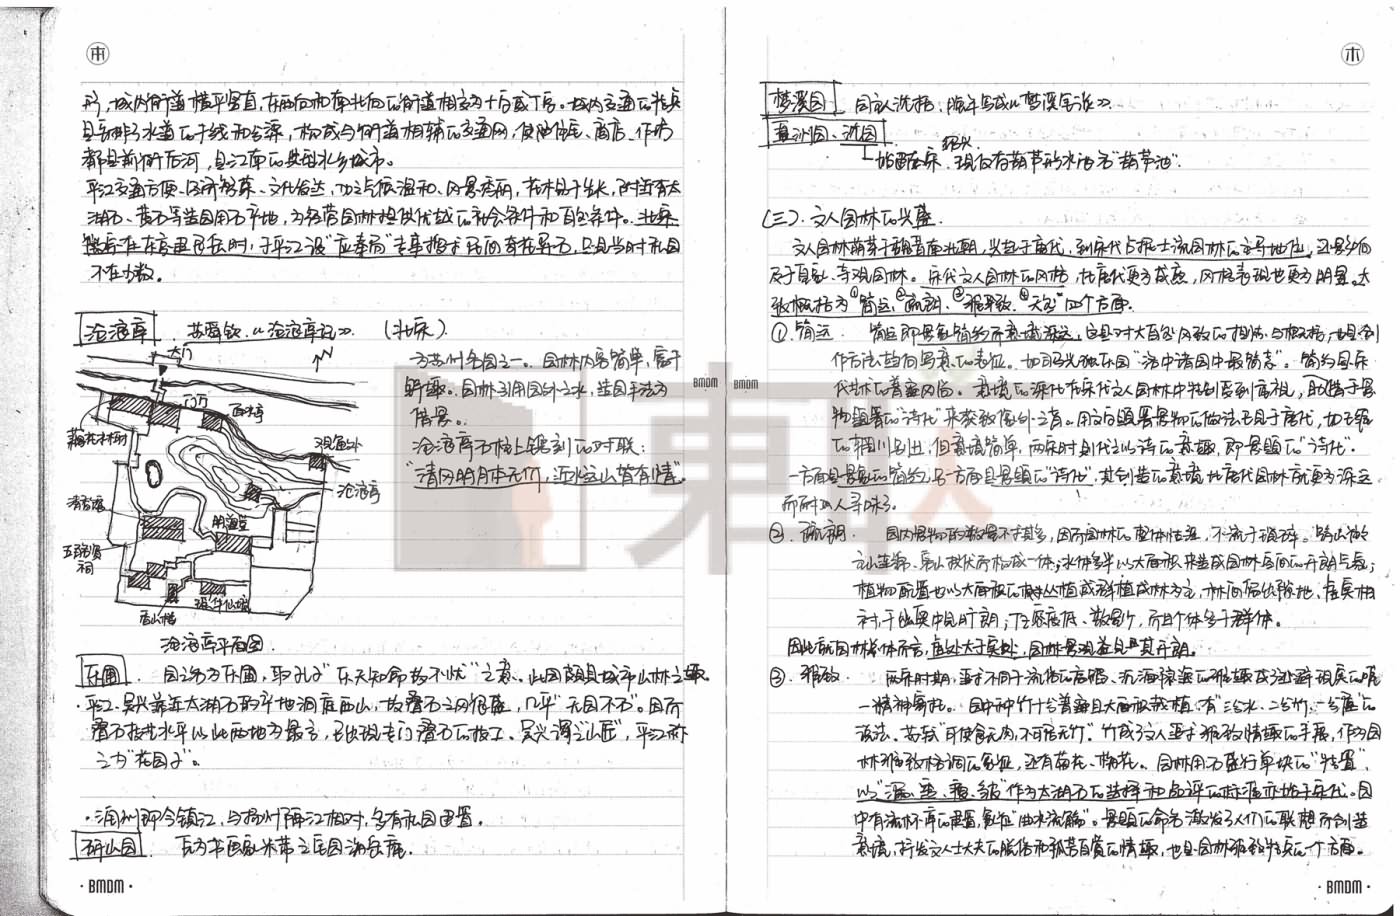 形，城内街道横平竖直，东西向和南北向的街道相交为十字或丁字。城内交通的特点
是兼部分水道的干线和支渠，构成与街道相辅的交通网，使陆住民、商店、作坊
都是前街后河，是江南的典型水乡城市。
平江交通方便、经济繁荣、文化发达，加之气候温和、风景秀丽，花木易于生长，附近有太
湖石、黄石等造园用石产地，为经营园林提供优越的社会条件和自然条件。北宋
徽宗在东京里艮岳时，于平江设“应奉局”专事搜求民间奇花异石，足见当时私园
不在少数。
沧浪亭 苏舜钦《沧浪亭记》 （北宋）
大门
N
面水亭
观鱼处
沧浪亭
清香馆
明道堂
五百名贤
祠
瑶华仙境
沧浪亭平面图
为苏州名园之一。园林内容简单，富于
野趣。园林引用园外之水，造园手法为
借景。
沧浪亭石柱上镌刻的对联：
“清风明月本无价，近水远山皆有情”
乐圃 园主名为乐圃，取孔子“乐天知命故不忧”之意。此园颇具城市山林之趣。
·平江、吴兴靠近太湖石的产地洞庭西山，故叠石之风很盛，几乎“无园不石”。因而
叠石技艺水平以此两地为最高，已出现专门叠石的技工。吴兴谓之“山匠”，平江称
之为“花园子”。
·润州即今镇江，与扬州隔江相对，多有私园建置。
研山园 原为书画家米芾之宅园海岳庵。
· BMDM ·
梦溪园 园主沈括，晚年写成《梦溪笔谈》
真州园、沈园
绍兴
始建南宋、现仅存葫芦形水池名“葫芦池”.
（三）. 文人园林的兴盛.
文人园林萌芽于魏晋南北朝，兴起于唐代，到宋代占据士流园林的主导地位，还影响
及于皇家、寺观园林。宋代文人园林的风格，比唐代更为成熟，风格表现也更为明显。大
致概括为①“简远、②疏朗、③雅致、④天然”四个方面.
① 简远. 简远即景象简约而意境深远，这是对大自然风致的提炼与概括，也是创
作方法趋向写意的表征。如司马光独乐园“洛中诸园中最简素”。简约是宋
代艺术的普遍风尚。意境的深化在宋代文人园林中特别受到重视，取借于景
物题署的“诗化”来获致像外之旨。用文字题署景物的做法已见于唐代，如王维
的辋川别业，但意境简单，两宋时则代之以诗的意趣，即景题的“诗化”.
一方面是景象的简约、另一方面是景题的“诗化”，其创造的意境比唐代园林更为深远
而耐人寻味了.
② 疏朗. 园内景物的数量不求其多，因而园林的整体性强，不流于琐碎。筑山往往
主山连绵、客山拱伏而构成一体；水体多半以大面积来造成园林空间的开朗气氛；
植物配置也以大面积的丛植或群植成林为主，林间留出隙地，虚实相
衬，于幽奥中见旷朗；建筑密度低、数量少，而且个体多于群体。
因此就园林总体而言，虚处大于实处，园林景观益见其开朗。
③ 雅致.
一精神寄托。园中种竹十分普遍且大面积栽植，有“三分水、二分竹、一分屋”的
说法。苏轼“可使食无肉，不可居无竹”. 竹成了文人寄于雅致情趣的手段，作为园
林雅致格调的象征，还有菊花、梅花。园林用石盛行单块的“特置”
以“漏、透、瘦、皱”作为太湖石的选择和品评的标准亦始于宋代。园
中有流杯亭的建置，象征“曲水流觞”。景题的命名激发了人们的联想而创造
意境，抒发文人士大夫的脱俗和孤芳自赏的情趣，也是园林雅致特点的一个方面。
BMDM
BMDM
· BMDM ·